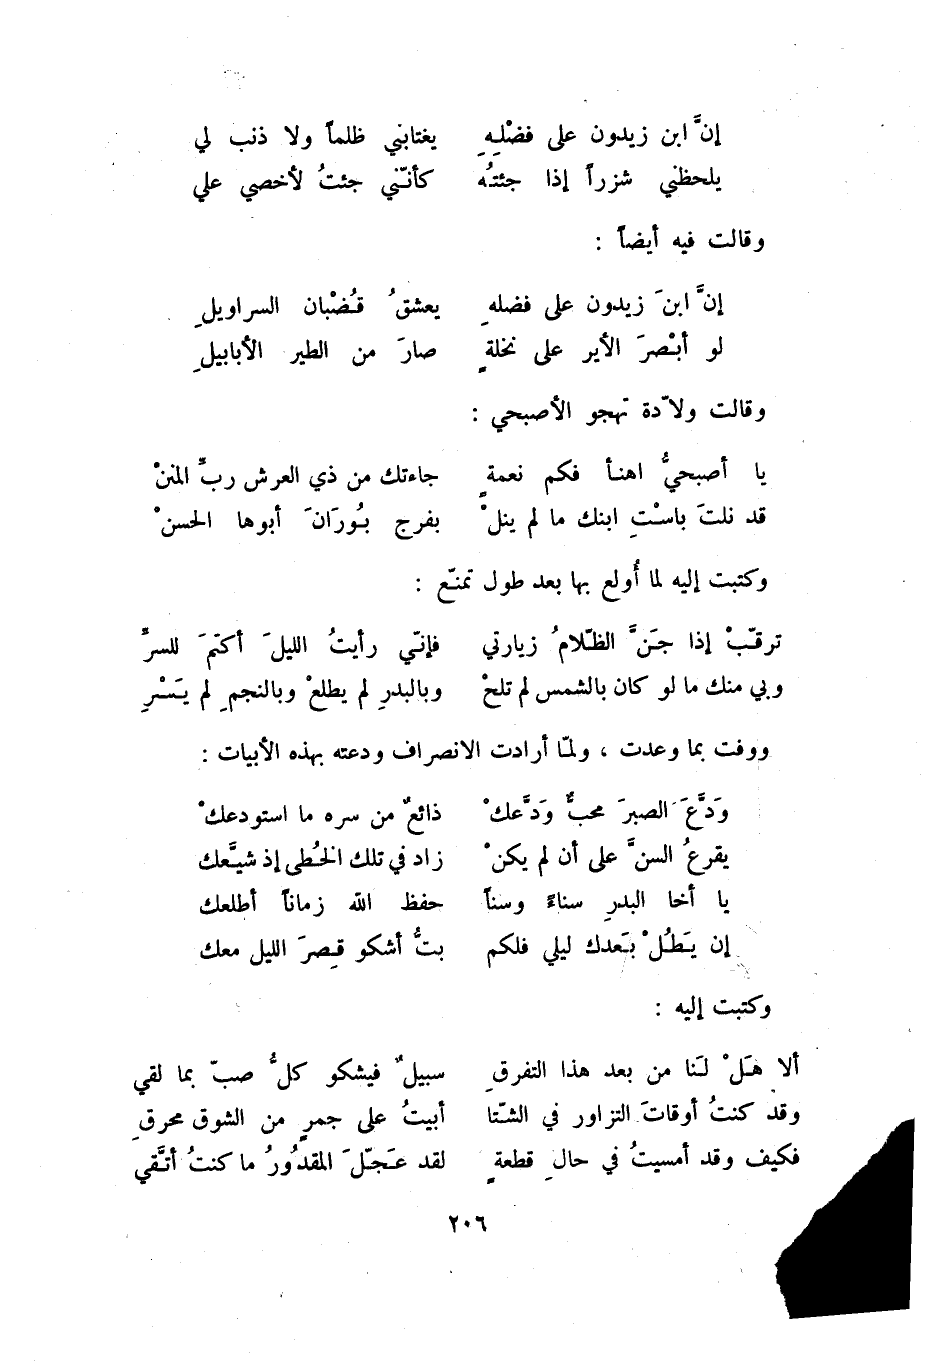 إنَّ ابن زيدون على فضْلِهِ يغتابني ظلماً ولا ذنب لي
يلحظني شزراً إذا جئتُه كأنّني جئتُ لأخصي علي
وقالت فيه أيضاً :
إنَّ ابنَ زيدون على فضلهِ يعشقُ قُضْبان السراويلِ
لو أبْصرَ الأير على نخلةٍ صارَ من الطير الأبابيلِ
وقالت ولاّدة تهجو الأصبحي :
يا أصبحيُّ اهنأ فكم نعمةٍ جاءتك من ذي العرش ربِّ المننْ
قد نلتَ باسْتِ ابنك ما لم ينلْ بفرج بُورَانَ أبوها الحسنْ
وكتبت إليه لما أُولع بها بعد طول تمنّع :
ترقّبْ إذا جَنَّ الظّلامُ زيارتي فإنّي رأيتُ الليلَ أكتمَ للسرِّ
وبي منك ما لو كان بالشمس لم تلحْ وبالبدرِ لم يطلعْ وبالنجمِ لم يَسْرِ
ووفت بما وعدت ، ولمّا أرادت الانصراف ودعته بهذه الأبيات :
وَدَّعَ الصبرَ محبٌّ وَدَّعكْ ذائعٌ من سره ما استودعكْ
يقرعُ السنَّ على أن لم يكنْ زاد في تلك الخُطى إذ شيَّعك
يا أخا البدرِ سناءً وسناً حفظ الله زماناً أطلعك
إن يَطُلْ بَعدك ليلي فلكم بتُّ أشكو قِصرَ الليل معك
وكتبت إليه :
ألا هَلْ لَنا من بعد هذا التفرقِ سبيلٌ فيشكو كلُّ صبّ بما لقي
وقد كنتُ أوقاتَ التزاور في الشّتا أبيتُ على جمرٍ من الشوق محرقِ
فكيف وقد أمسيتُ في حالِ قطعةٍ لقد عَجّلَ المقدُورُ ما كنتُ أتَّقي
٢٠٦